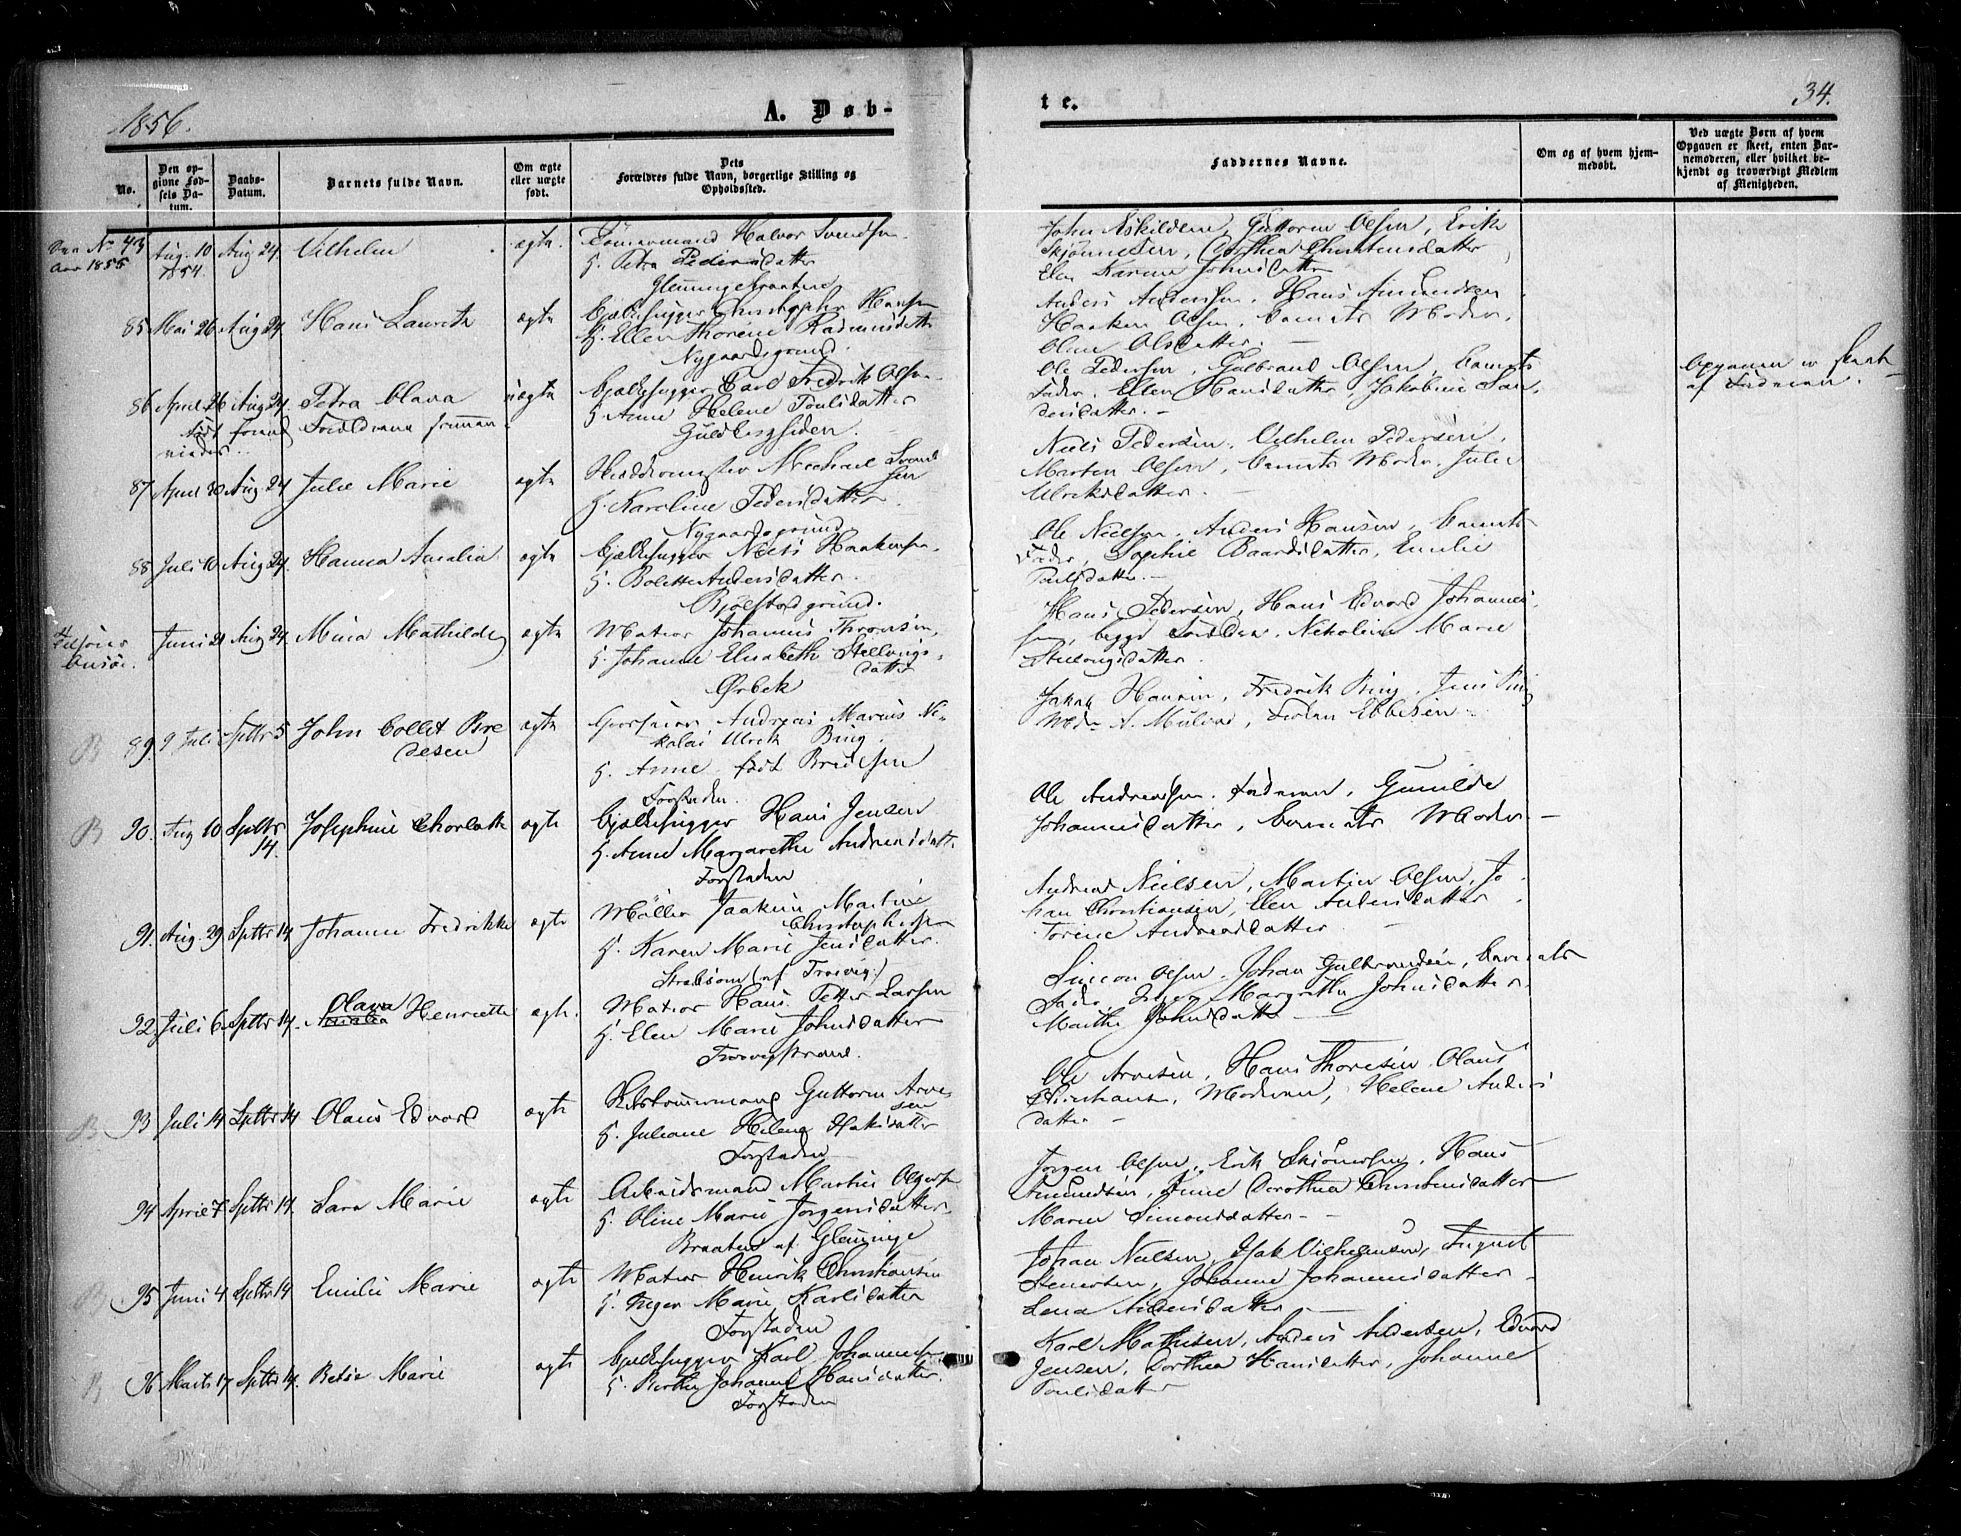 1856.
A. Døb-
te.
34.
No.
Den op-
givne Fød-
sels Da-
tum.
Daabs-
Datum.
Barnets fulde Navn.
Om ægte
eller uægte
født.
Dets
Forældres fulde Navn, borgerlige Stilling og
Opholdssted.
Faddernes Navne.
Om og af hvem hjem-
medøbt.
Ved uægte Børn af hvem
Opgaven er skeet, enten Bar-
nemoderen, eller hvilket be-
kjendt og troværdigt Medlem
af Menigheden.
No 43
Aar 1855
Aug. 10
1854.
Aug 24
Vilhelm
ægte.
Tømmermand Halvor Svendsen
H. Petra Pedersdatter
Glemmingebraatene
John Eskildsen, Guttorm Olsen, Erik
Skjønnesen, Dorthea Christensdatter
Elen Karine Johnsdatter
85
Mai 26
Aug 24
Hans Lauritz
ægte
Bjelkehugger Christopher Hansen
H. Ellen Thorine Rasmusdatter
Nygaardsgrund
Anders Andersen, Hans Amundsen
Haaken Olsen, barnets Moder,
Oline Olsdatter.
86
April 26
Aug 24
Petra Olava
uægte
født
Forældrene
Bjelkehugger Carl Fredrik Olsen
H. Anne Helene Poulsdatter
Guldbergsiden
Ole Pedersen, Gulbrand Olsen, barnets
Fader, Ellen Hansdatter, Jakobine
datter.
Opgaven er skeet
af Faderen.
87
April 30
Aug 24
Julie Marie
ægte
Michael Svend
sen
H. Karoline Pedersdatter
Nygaardsgrund
Niels Pedersen, Vilhelm Pedersen,
Morten Olsen, barnets Moder, Julie
Ulriksdatter.
88
Juli 10
Aug 24
Hanna Amalia
ægte
Bjelkehugger Niels Haakensen
H. Bolette Andersdatter
Bjølstadgrund.
Ole Nielsen, Anders Hansen, barnets
Fader, Sophie Baardsdatter, Emilie
Poulsdatter.
Juni 21
Aug 24
Mina Mathilde
ægte
Matros Johannes Thronsen
H. Johanne Elisabeth Stellvigs
datter
Ørbek
Hans Pedersen, Hans Edvard Johannes
sen, begge Forældre, Nikoline Marie
datter.
B
89.
9 Juli
Septbr 5
John Collet Bre
desen
ægte
Andreas Marius Ni-
kolai Ulrik Bing.
H. Anne født Bredesen
Forstaden.
Jakob Hansen, Fredrik Bing, Jens Bing
Ebbesen
B
90.
Aug 10
Septbr
14.
Josephine Chorlotte
ægte
Bjelkehugger Hans Jensen
H. Anne Margrethe Andreasdatt.
Forstaden
Ole Andreasen, Faderen, Gunilde
Johannesdatter, barnets Moder
91.
Aug. 29
Septbr 14
Johanne Fredrikke
ægte
Møller Joakim Martin
Christophersen
H. Karen Marie Jensdatter.
(af Trosvig)
Andreas Nielsen, Martin Olsen, Jo
han Christiansen, Elen Andersdatter
Torine Andreasdatter
92
Juli 6
Septbr 14.
Olava
Henriette
ægte.
Matros Hans Petter Larsen
H. Elen Marie Johnsdatter
Trosvigstrand.
Simon Olsen, Johan Gulbrandsen, barnets
Fader, Inger Margrethe Johnsdatter
Marthe Johnsdatter
B
93
Juli 14
Septbr 14
Olaus Edvard
ægte
Guttorm Arve
sen
H. Juliane Helene Hansdatter
Forstaden
Ole Arvesen, Hans Thoresen, Olaus
Christiansen, Moderen, Helene Anders
datter
94
April 7
Septbr 14.
Sara Marie
ægte
Arbeidsmand Martin Olsen
H. Oline Marie Jørgensdatter
Braaten af Glemminge
Jørgen Olsen, Erik Skjønnesen, Hans
Amundsen, Anne Dorothea Christensdatter
Maren Simonsdatter
B
95
Juni 4
Septbr 14
Emilie Marie
ægte
Matros Henrik Christiansen
H. Inger Marie Karlsdatter
Forstaden
Johan Nielsen, Isak Vilhelmsen, August
Johanne Johannesdatter
Lena Andersdatter
B
96
Marts 17
Septbr 14.
Betsie Marie
ægte
Bjelkehugger Karl Johannesen
H. Berthe Johanne Hansdatter
Forstaden
Karl Mathisen, Anders Andersen, Edvard
Jensen, Dorthea Hansdatter, Johanne
Poulsdatter